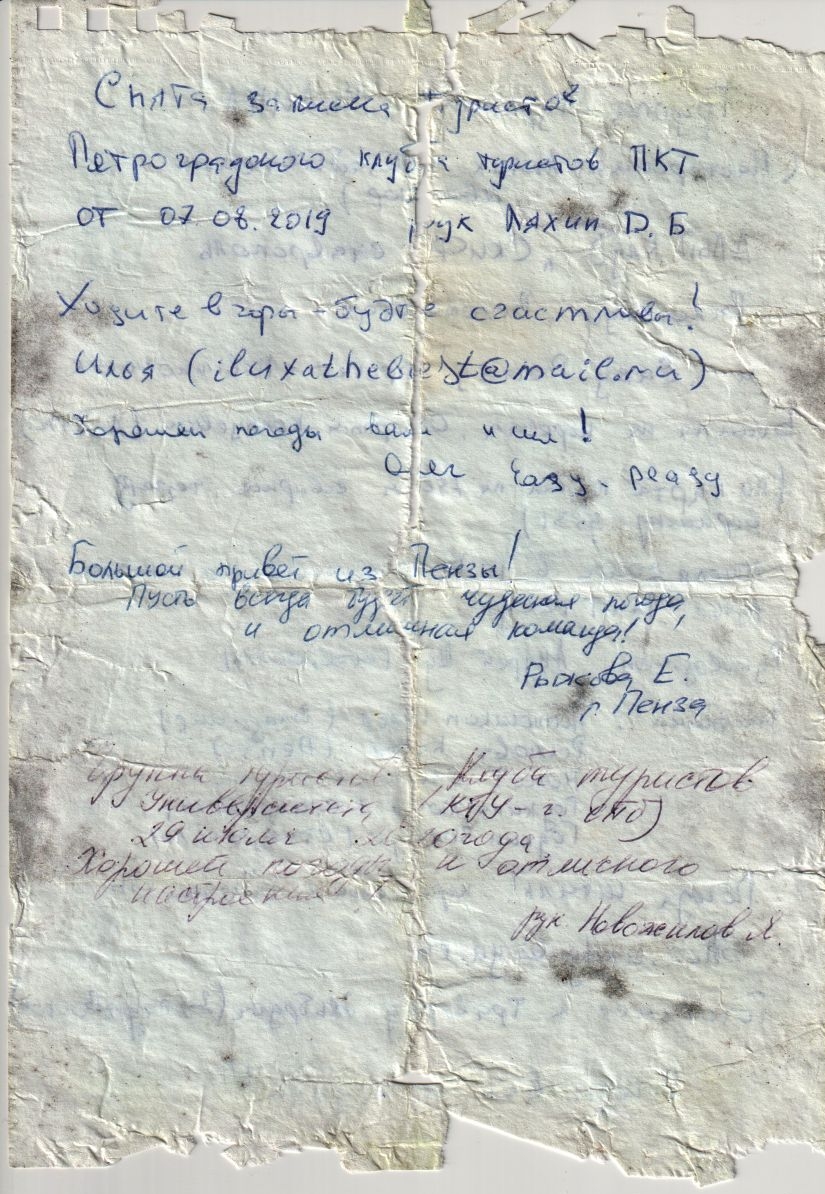 Снята записка туристов
Петроградского клуба туристов ПКТ
от 07.08.2019 рук Ляхин Д. Б
Ходите в горы - будте счастливы!
Илья (iluxathebeast@mail.ru)
Хорошей погоды вам и сил!
Олег easy-peasy
Большой привет из Пензы!
Пусть всегда будет чудесная погода,
и отличная команда!
Рыжова Е.
г. Пенза
Группа туристов Клуба туристов
Университета г. СПб)
29 июля года
Хорошей погоды и отличного
настроения
рук Новожилов Я.